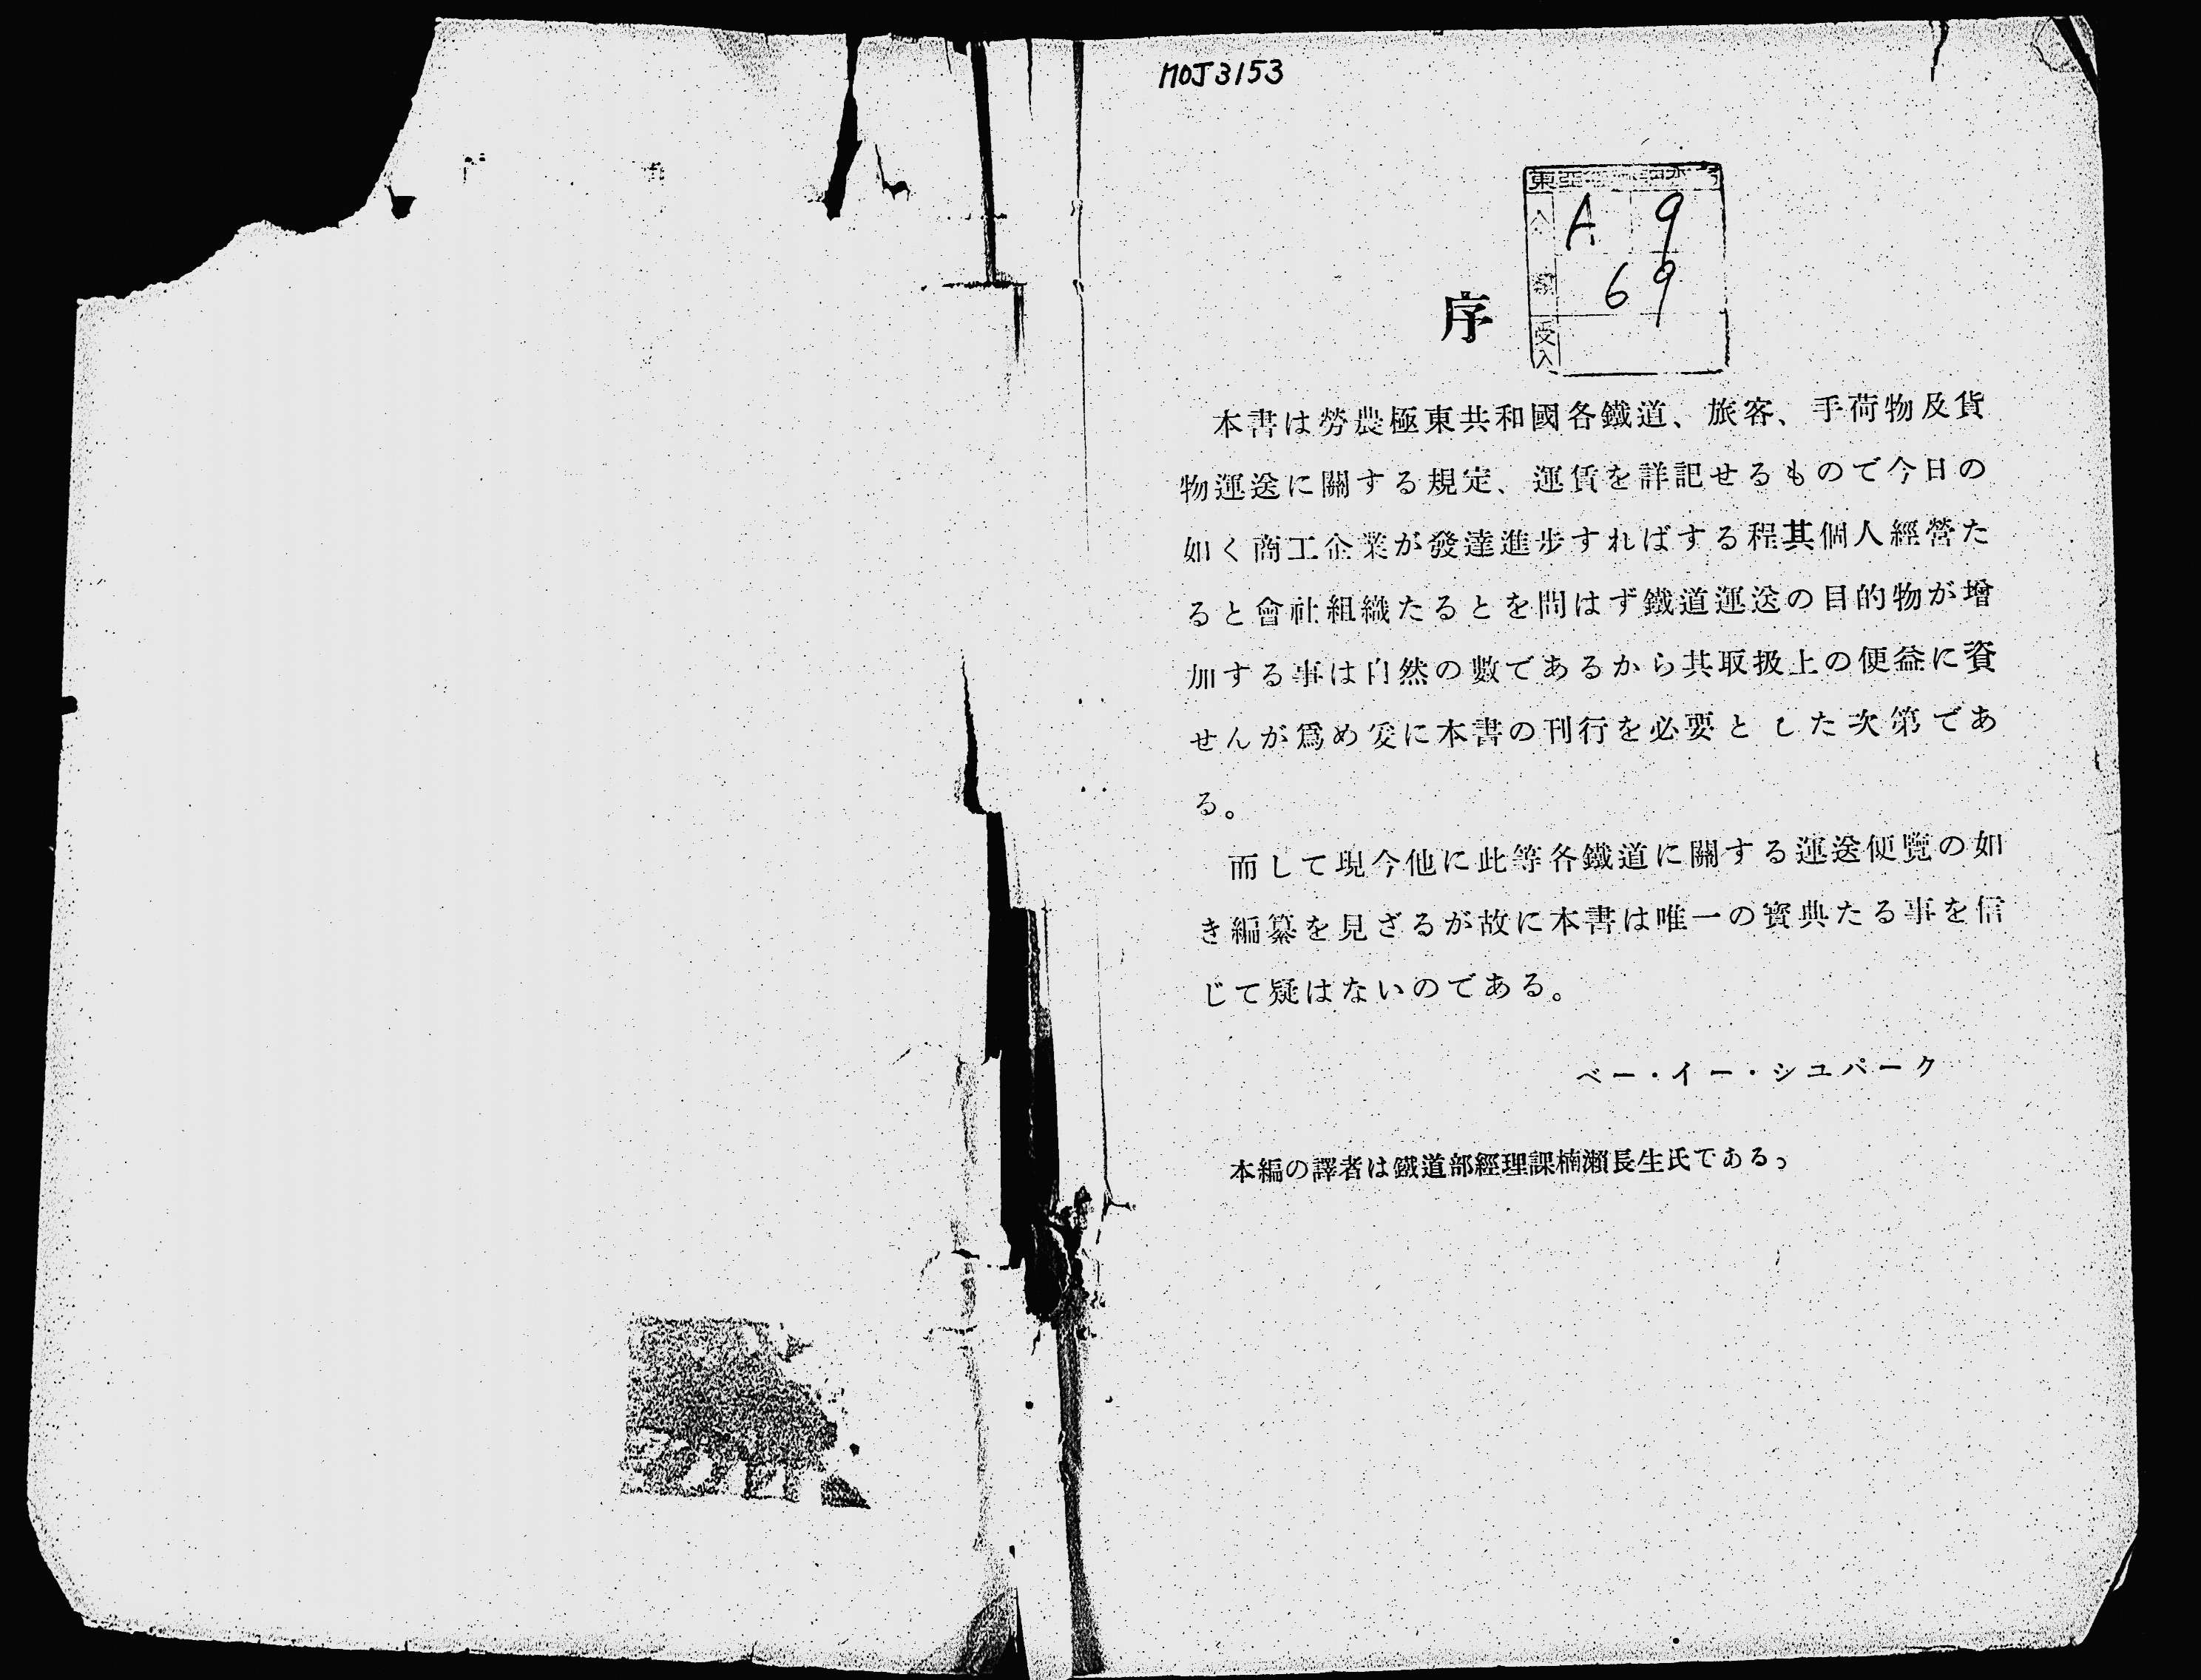 MOJ 3153
A 9
69
受入
序
本書は勞農極東共和國各鐵道、旅客、手荷物及貨
物運送に關する規定、運賃を詳記せるもので今日の
如く商工企業が發達進步すればする程其個人經營た
ると會社組織たるとを問はず鐵道運送の目的物が增
加する事は自然の數であるから其取扱上の便益に資
せんが爲め爰に本書の刊行を必要とした次第であ
る。
而して現今他に此等各鐵道に關する運送便覽の如
き編纂を見ざるが故に本書は唯一の寶典たる事を信
じて疑はないのである。
ベー・イー・シユパーク
本編の譯者は鐵道部經理課楠瀨長生氏である。